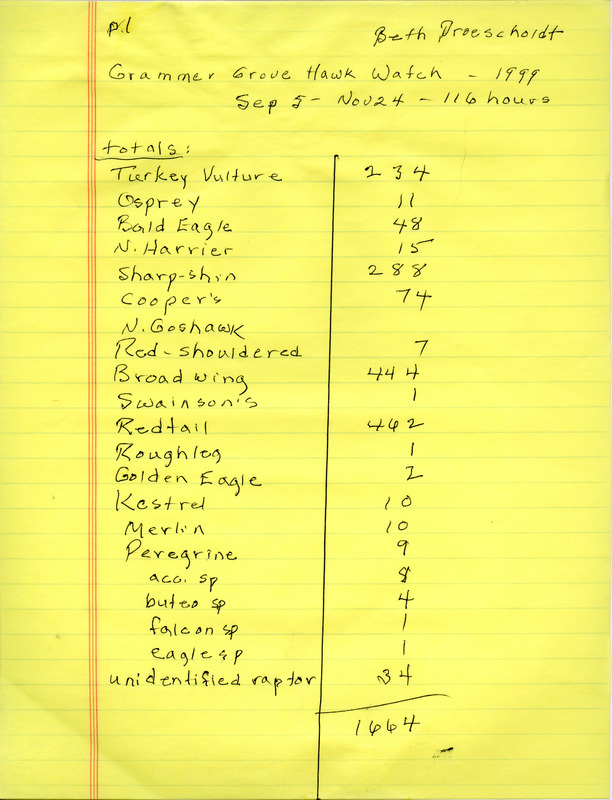 p.1
Beth Proescholdt
Grammer Grove Hawk Watch - 1999
Sep 5 - Nov 24 - 116 hours
totals:
Turkey Vulture 234
Osprey 11
Bald Eagle 48
N. Harrier 15
Sharp-shin 288
Cooper's 74
N. Goshawk
Red-shouldered 7
Broad wing 444
Swainson's 1
Redtail 462
Roughleg 1
Golden Eagle 2
Kestrel 10
Merlin 10
Peregrine 9
acc. sp 8
buteo sp 4
falcon sp 1
eagle sp 1
unidentified raptor 34
1664